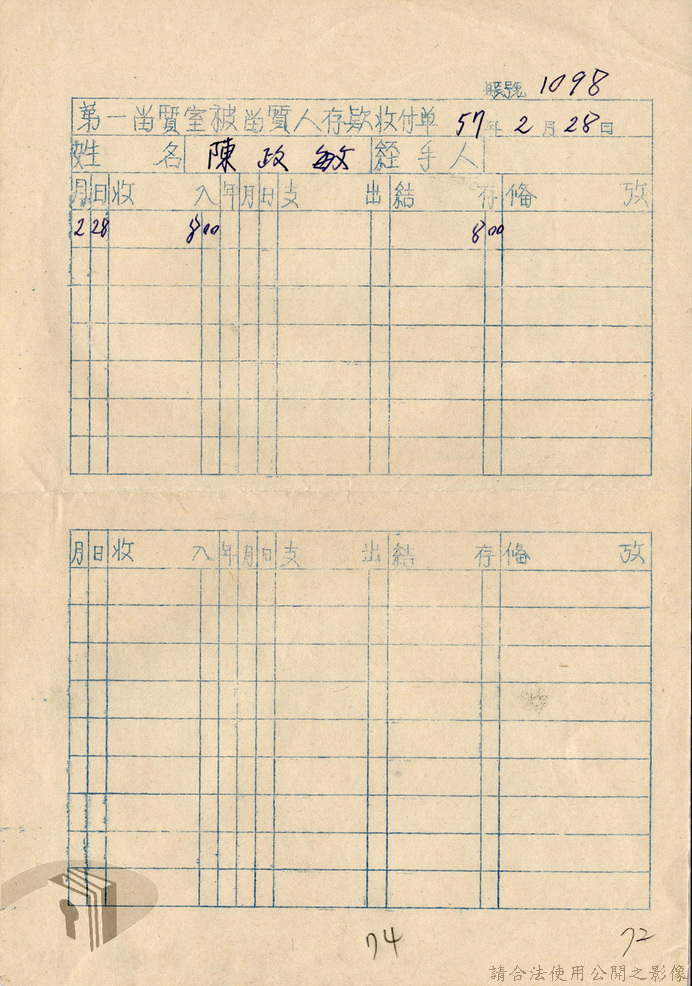 賬號 1098
第一留質室被留質人存欵收付单 57年2月28日
姓 名 陳政敏 經手人
月 日 收 入 年 月 日 支 出 結 存 俻 攷
2 28 800 800
月 日 收 入 年 月 日 支 出 結 存 俻 攷
74 72
請合法使用公開之影像